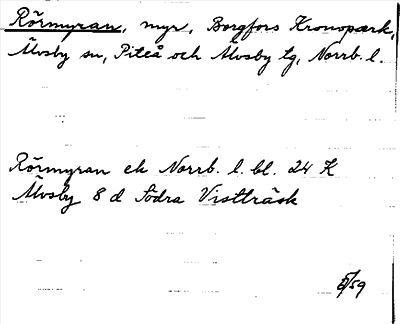 Rörmyran, myr, Borgfors Kronopark,
Älvsby sn, Piteå och Älvsby tg, Norrb. l.
Rörmyran ek Norrb. l. bl. 24 K
Älvsby 8 d Södra Vistträsk
/59